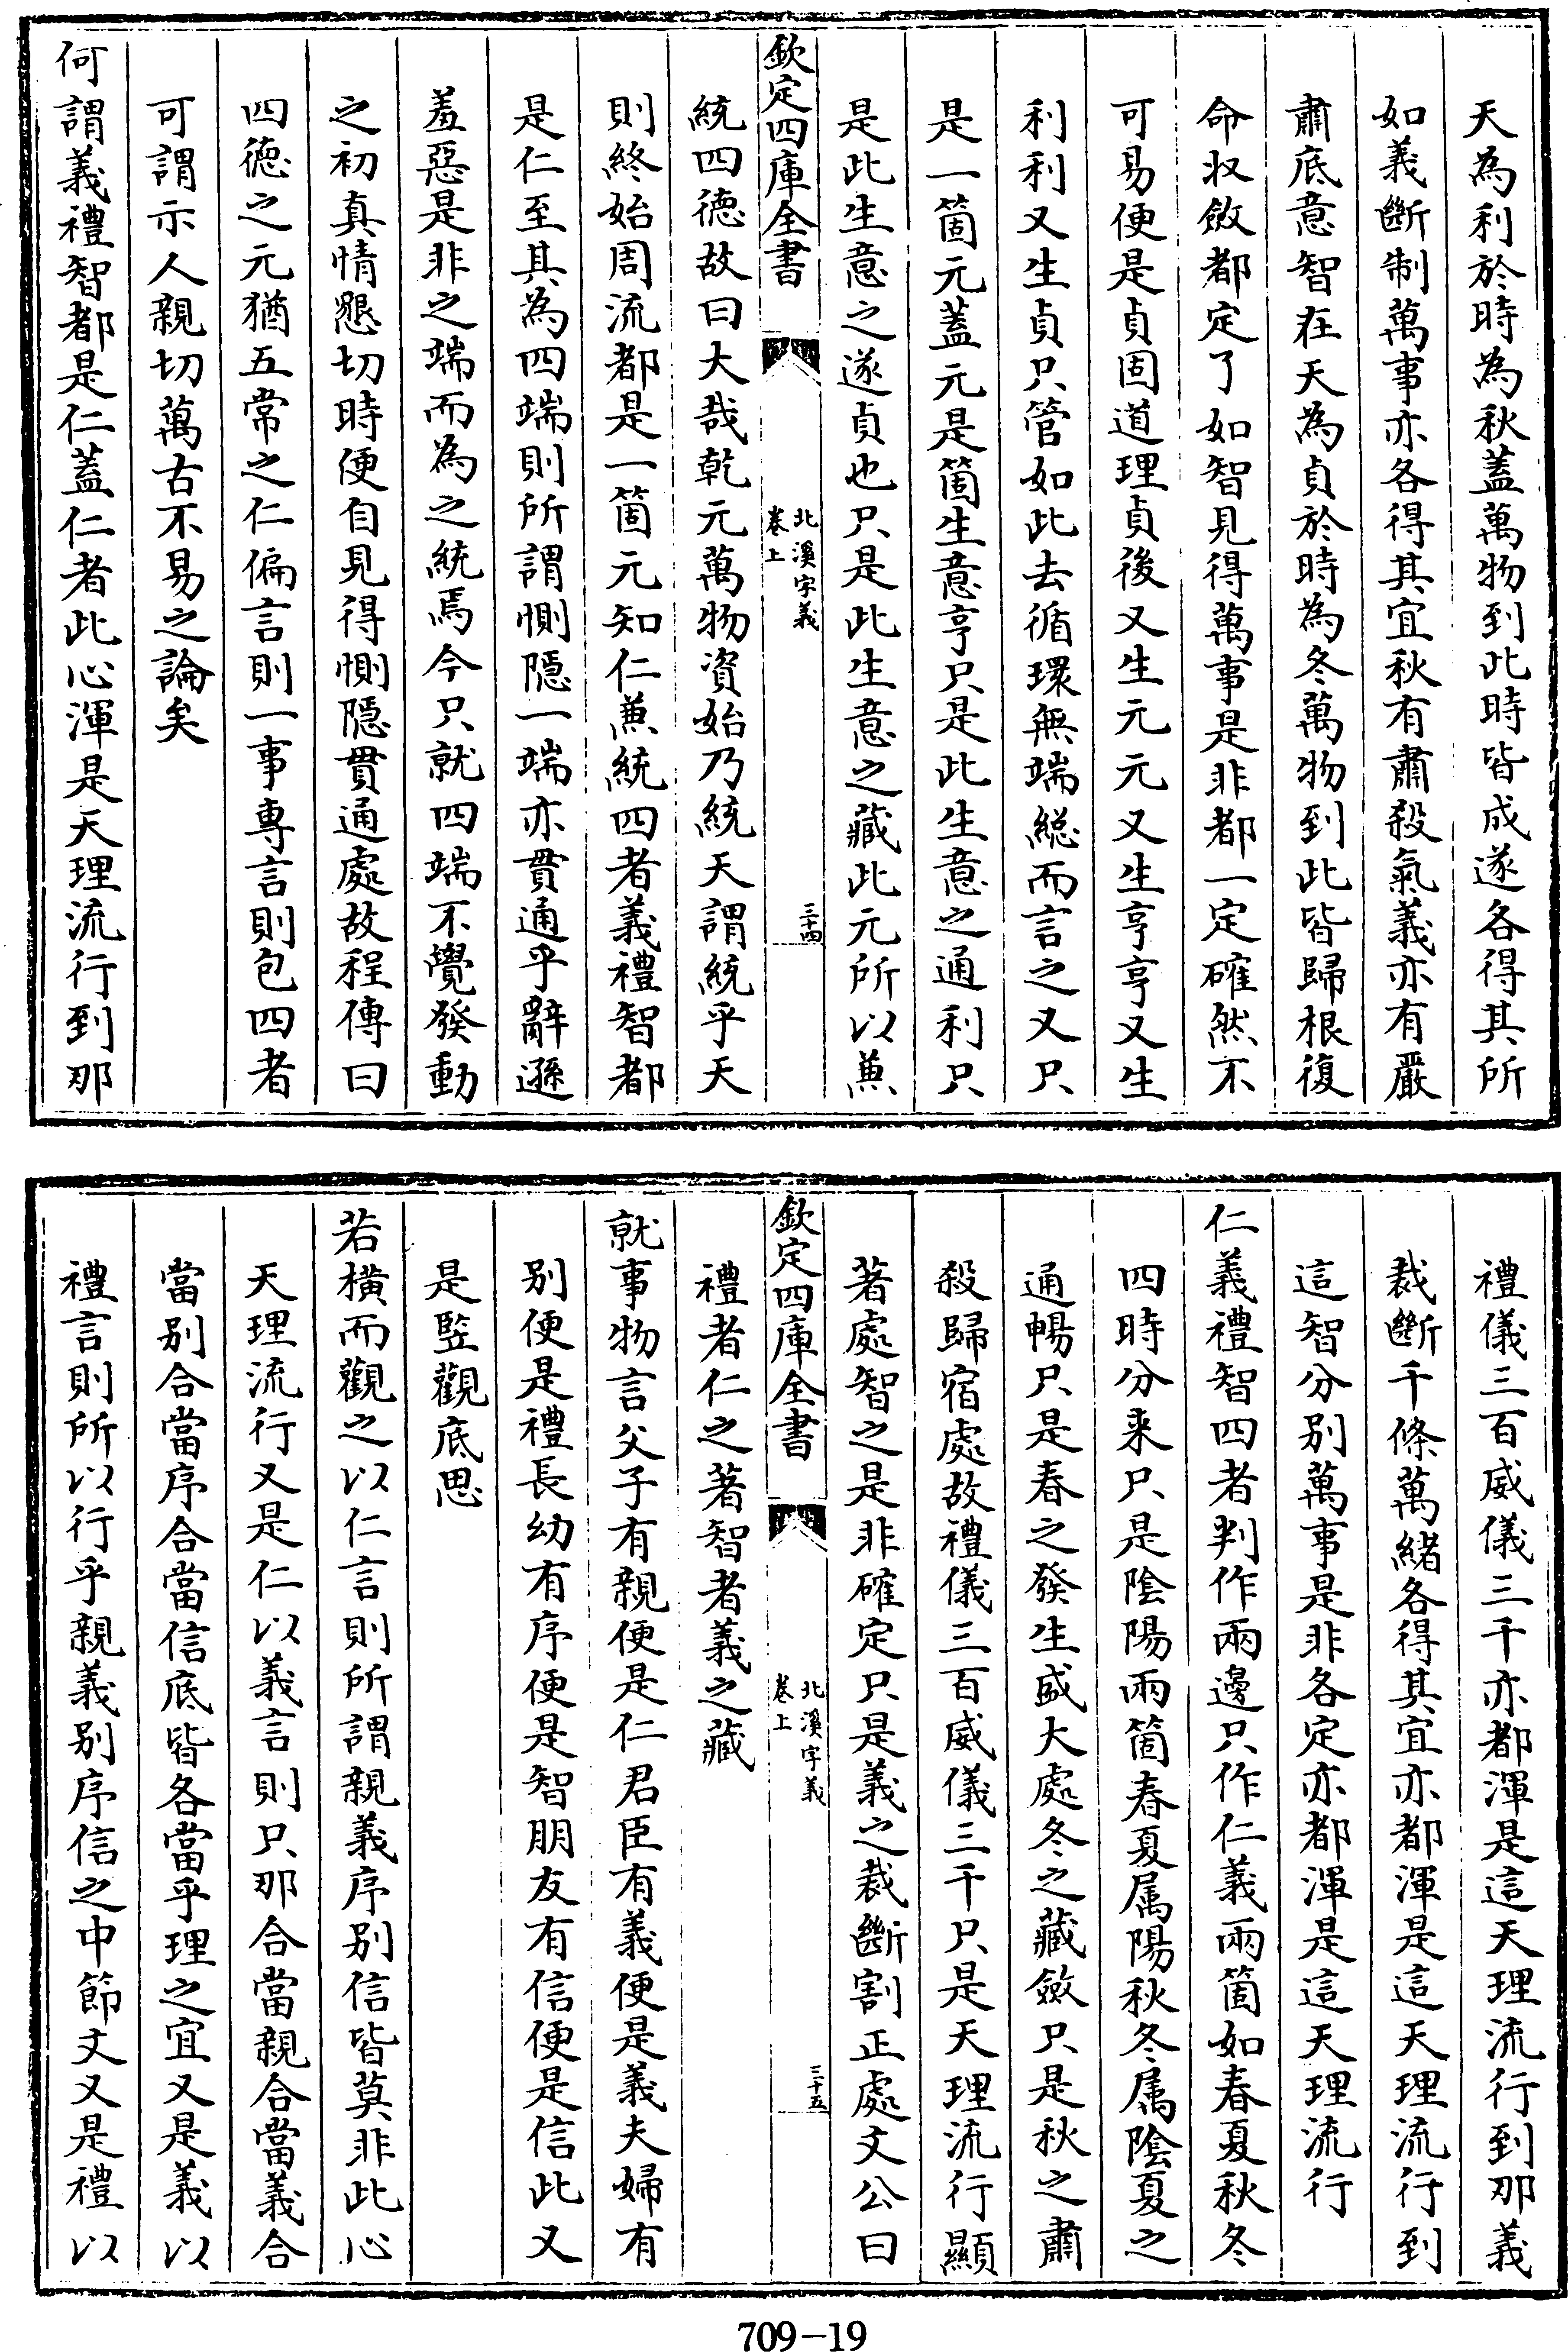 天為利於時為秋蓋萬物到此時皆成遂各得其所
如義斷制萬事亦各得其宜秋有肅殺氣義亦有嚴
肅底意智在天為貞於時為冬萬物到此皆歸根復
命収斂都定了如智見得萬事是非都一定確然不
可易便是貞固道理貞後又生元元又生亨亨又生
利利又生貞只管如此去循環無端總而言之又只
是一箇元蓋元是箇生意亨只是此生意之通利只
是此生意之遂貞也只是此生意之藏此元所以兼
欽定四庫全書
北溪字義
卷上
三十四
統四德故曰大哉乾元萬物資始乃統天謂統乎天
則終始周流都是一箇元知仁兼統四者義禮智都
是仁至其為四端則所謂惻隱一端亦貫通乎辭遜
羞惡是非之端而為之統焉今只就四端不覺發動
之初真情懇切時便自見得惻隱貫通處故程傳曰
四德之元猶五常之仁偏言則一事專言則包四者
可謂示人親切萬古不易之論矣
何謂義禮智都是仁蓋仁者此心渾是天理流行到那
禮儀三百威儀三千亦都渾是這天理流行到那義
裁斷千條萬緒各得其宜亦都渾是這天理流行到
這智分別萬事是非各定亦都渾是這天理流行
仁義禮智四者判作兩邊只作仁義兩箇如春夏秋冬
四時分来只是陰陽兩箇春夏属陽秋冬属陰夏之
通暢只是春之發生盛大處冬之藏斂只是秋之肅
殺歸宿處故禮儀三百威儀三千只是天理流行顯
著處智之是非確定只是義之裁斷割正處文公曰
欽定四庫全書
北溪字義
卷上
三十五
禮者仁之著智者義之藏
就事物言父子有親便是仁君臣有義便是義夫婦有
別便是禮長幼有序便是智朋友有信便是信此又
是竪觀底思
若橫而觀之以仁言則所謂親義序別信皆莫非此心
天理流行又是仁以義言則只那合當親合當義合
當別合當序合當信底皆各當乎理之宜又是義以
禮言則所以行乎親義別序信之中節文又是禮以
709-19